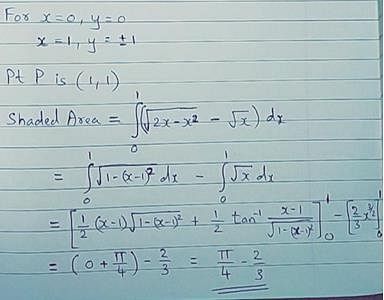 For x=0, y=0
x=1, y=±1
Pt P is (1,1)
Shaded Area = ∫₀¹(√(2x-x²) - √x) dx
= ∫₀¹ √(1-(x-1)²) dx - ∫₀¹ √x dx
= [1/2 (x-1)√(1-(x-1)²) + 1/2 tan⁻¹ (x-1)/√(1-(x-1)²)]₀¹ - [2/3 x^(3/2)]₀¹
= (0 + π/4) - 2/3 = π/4 - 2/3